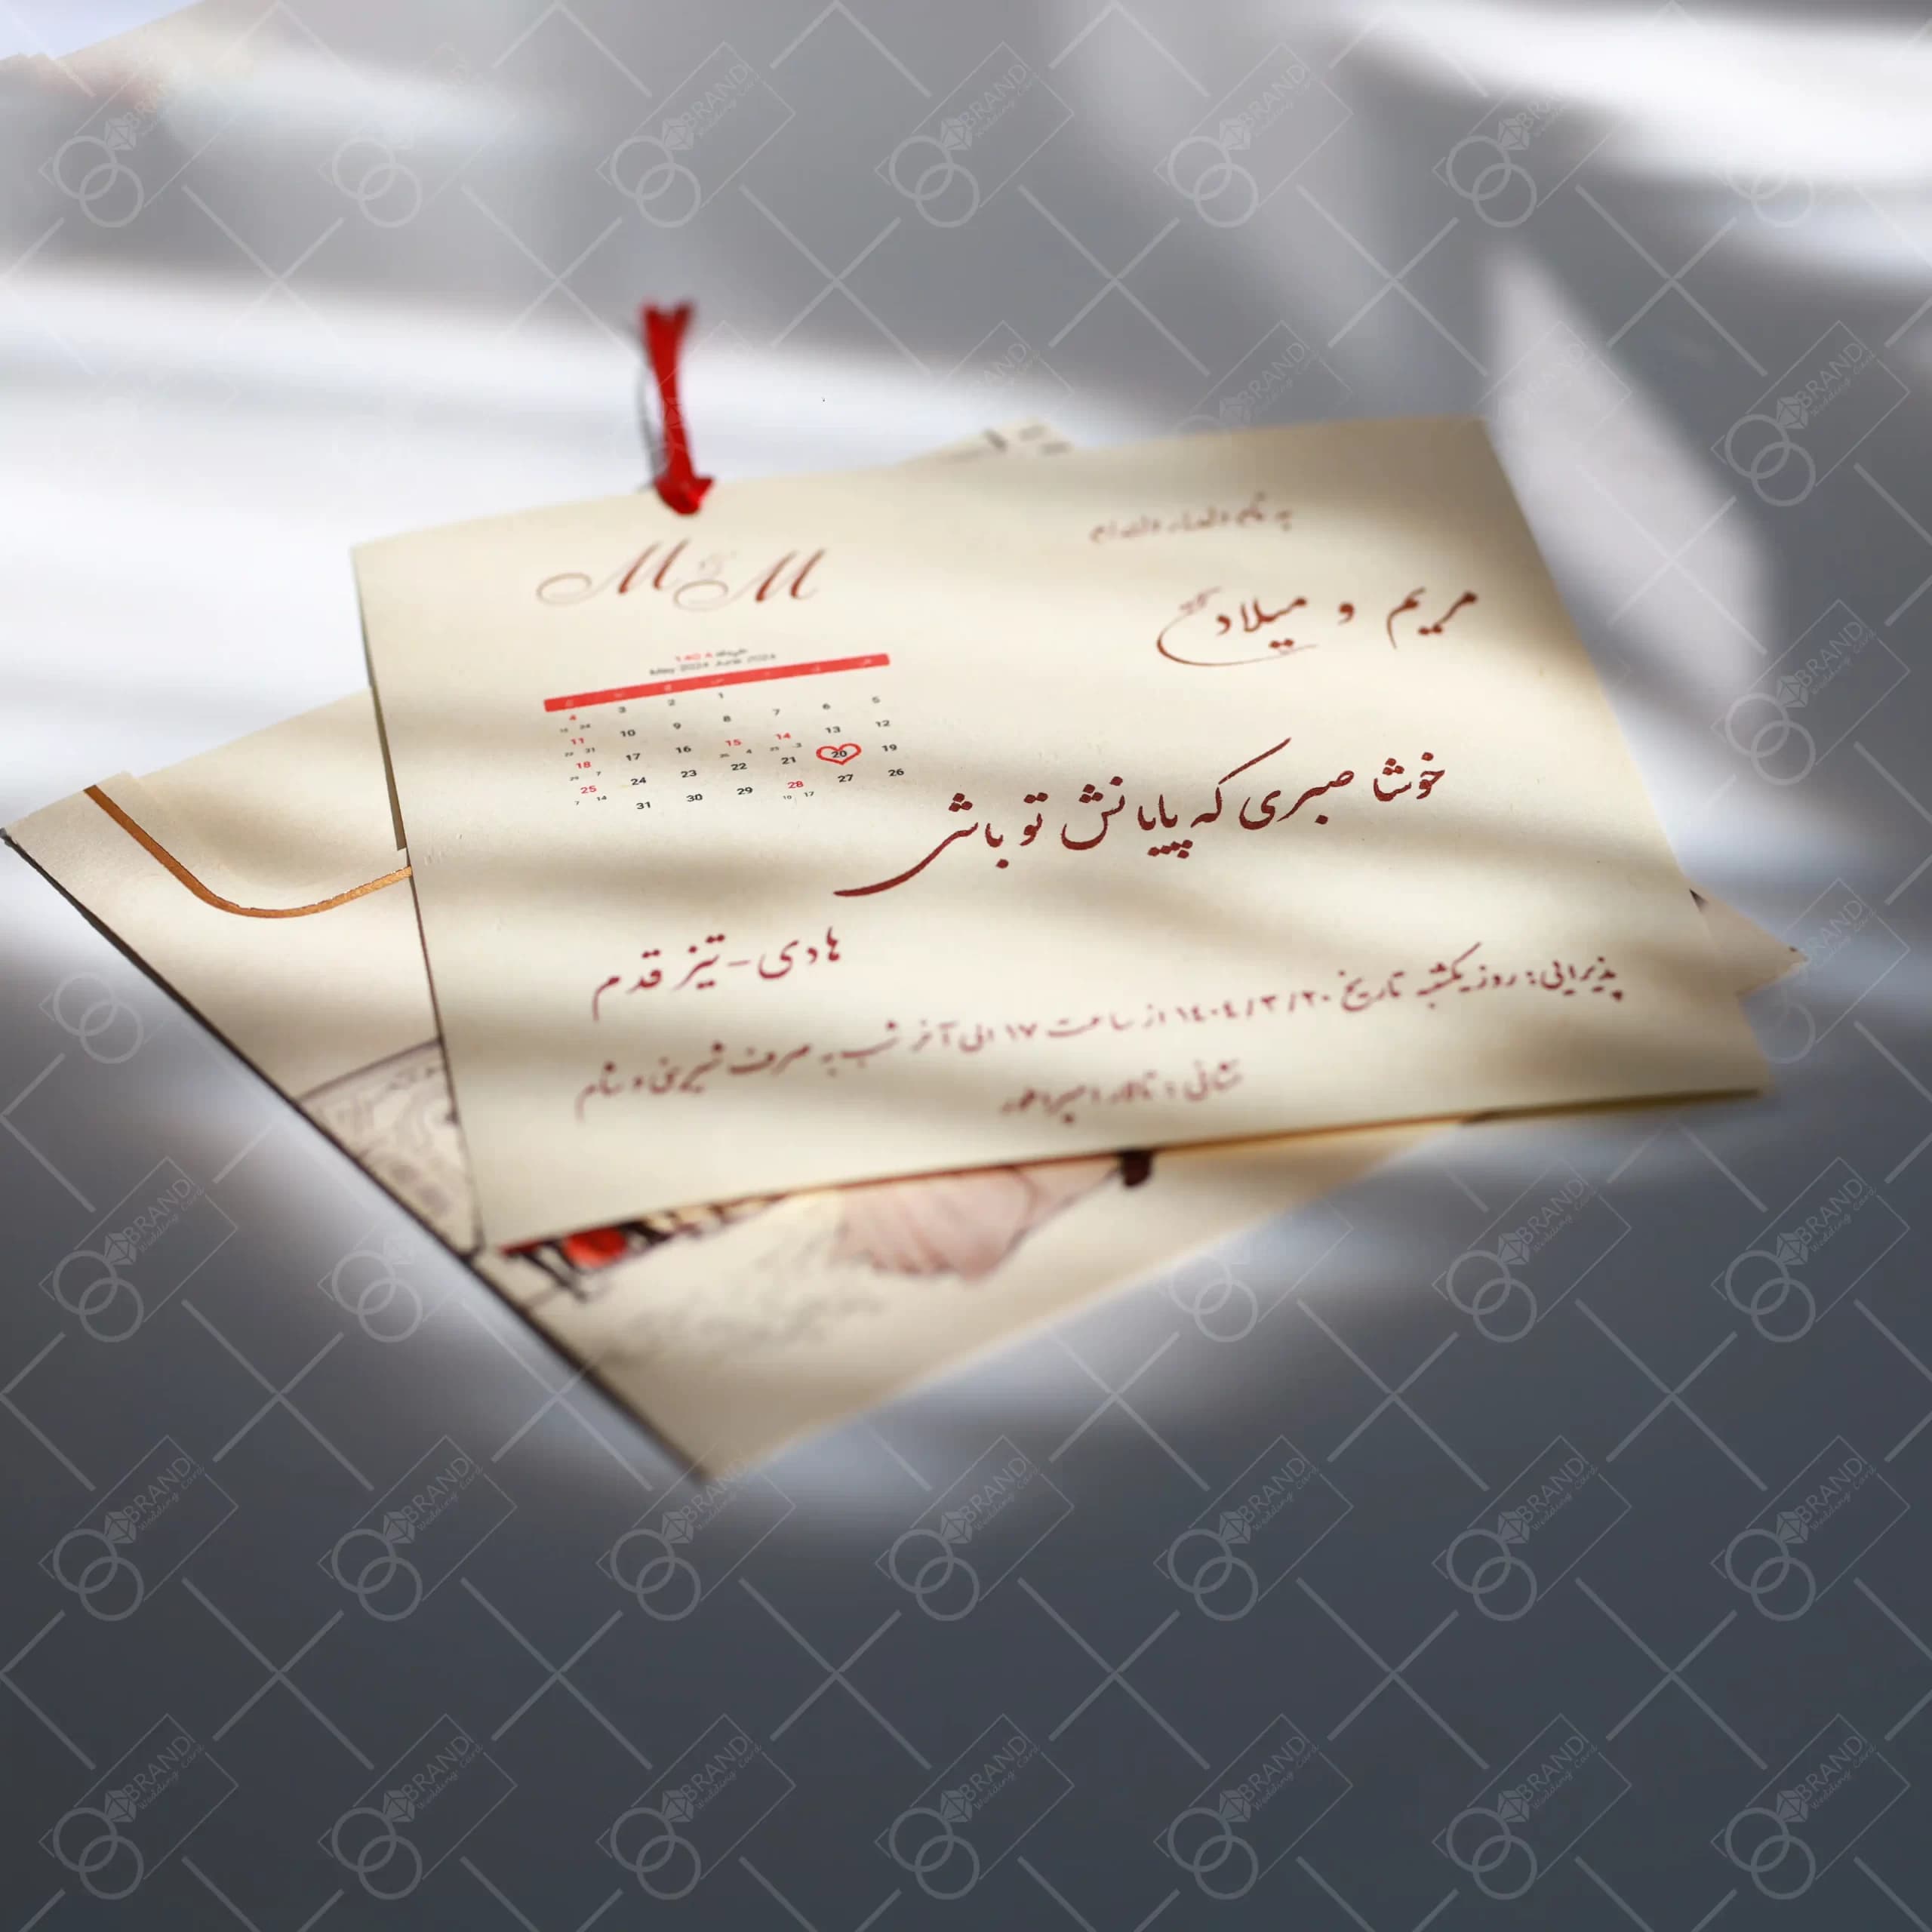 M & M
مریم و میلاد
خرداد ۱۴۰۴
May 2024 June 2024
1 2 3 4
5 6 7 8 9 10 11
12 13 14 15 16 17 18
19 20 21 22 23 24 25
26 27 28 29 30 31
خوشا صبری که پایانش تو باشی
هادی - تیزقدم
پذیرایی: روز یکشنبه تاریخ ۱۴۰۴/۳/۲۰ از ساعت ۱۷ الی آخر شب به صرف شیرینی و شام
نشانی: تالار
BRAND
Wedding Card